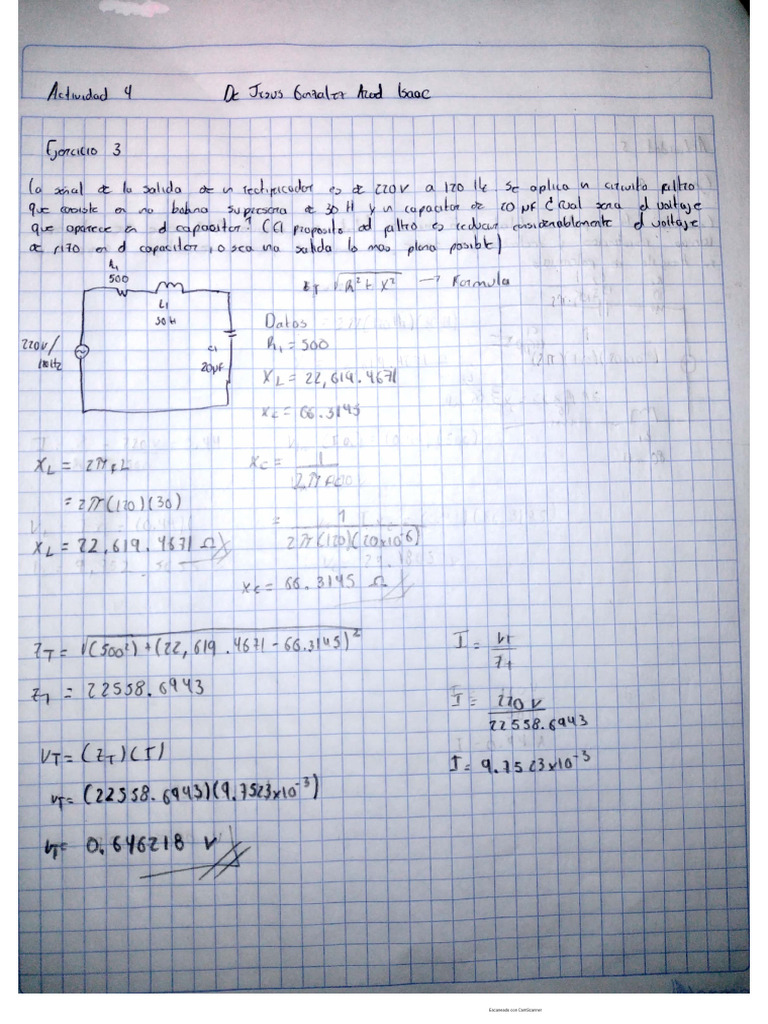 Actividad 4 De Jesus Gonzalez Azod Isaac
Ejercicio 3
La señal de la salida de un rectificador es de 220V a 120 Hz se aplica un circuito filtro
que consiste en no bobina supresora de 30 H y un capacitor de 20 μF ¿Cual sera el voltaje
que aparece en el capacitor? (El proposito del filtro es reducir considerablemente el voltaje
de rizo en el capacitor, o sea na salida lo mas plana posible)
R1
500
L1
30 H
220V/
120Hz
C1
20μF
ZT √R²+X² → Formula
Datos
R1 = 500
XL = 22,619.4671
XC = 66.3145
XL = 2πfL
= 2π(120)(30)
XL = 22,619.4671 Ω
XC = 1
= 1
2π(120)(20x10-6)
XC = 66.3145 Ω
ZT = √(500²)+(22,619.4671 - 66.3145)²
ZT = 22558.6943
I = VT
ZT
I = 220 V
22558.6943
I = 9.7523x10-3
VT = (ZT)(I)
VT = (22558.6943)(9.7523x10-3)
VT = 0.646218 V
Escaneado con CamScanner